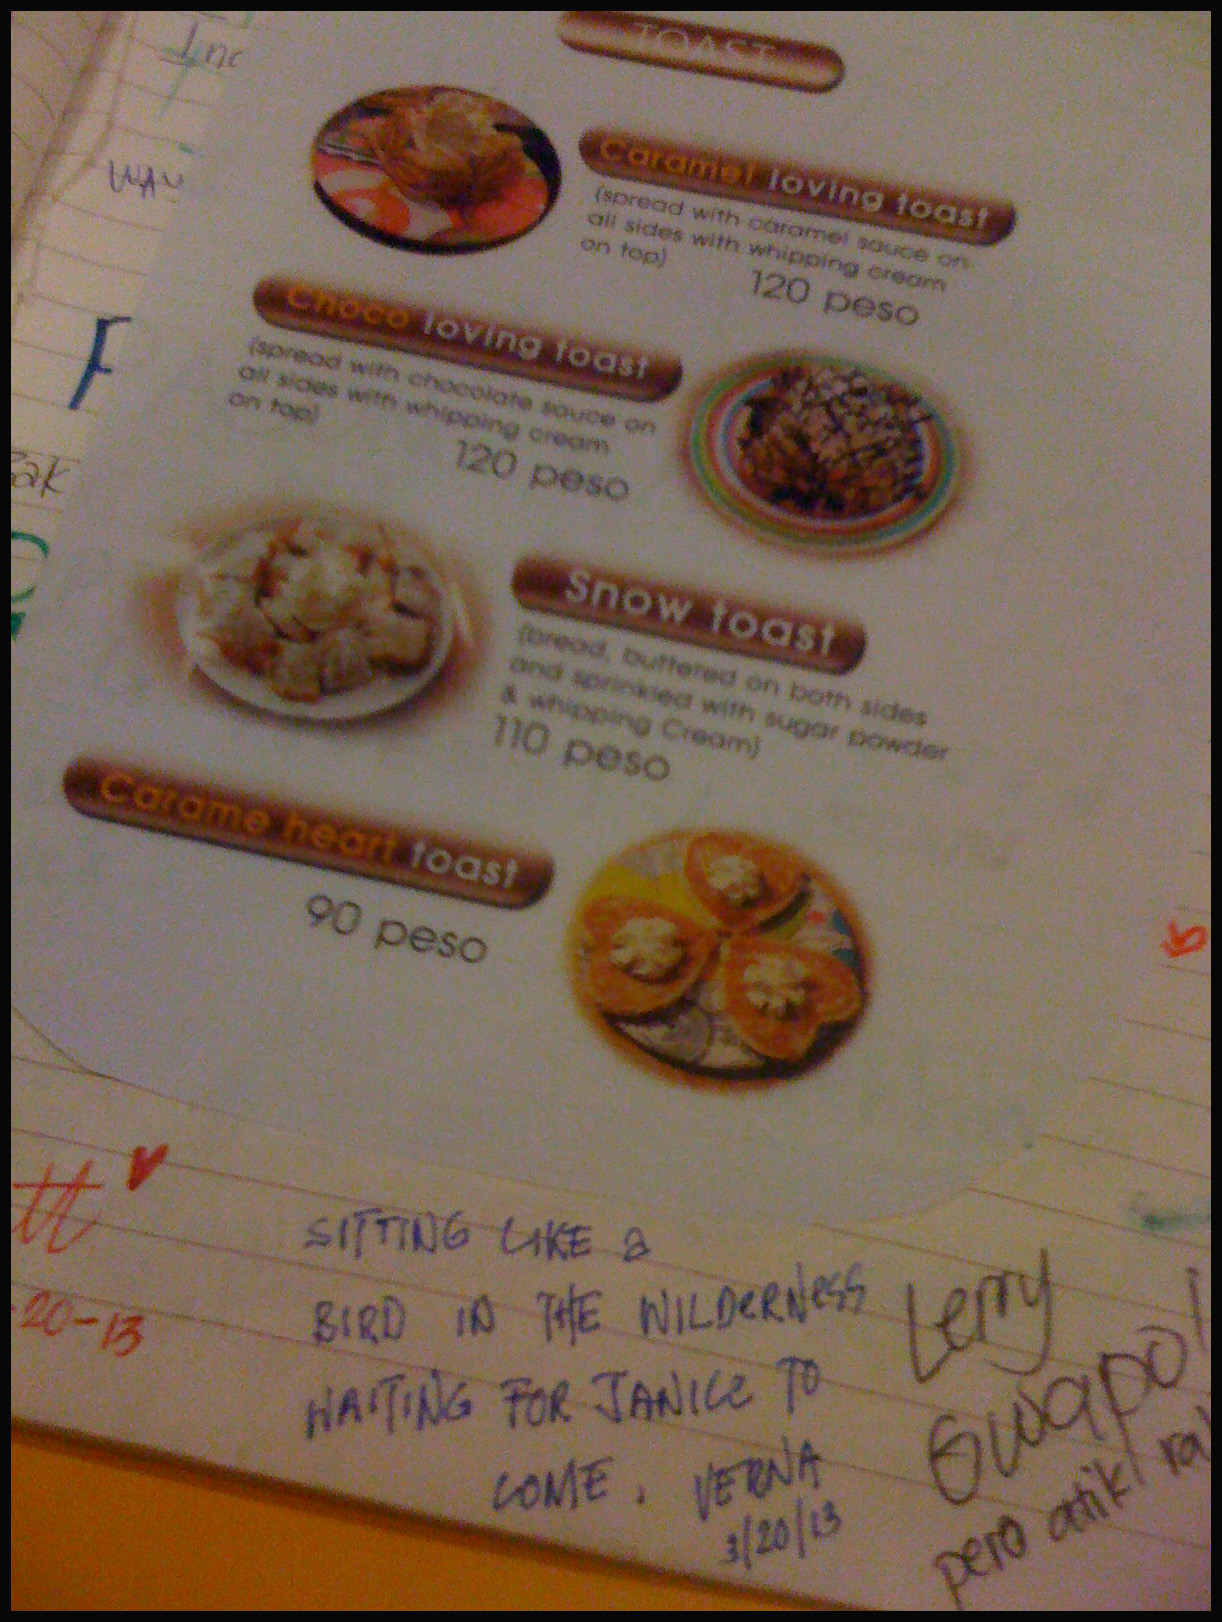 TOAST
Caramel loving toast
(spread with caramel sauce on
all sides with whipping cream
on top)
120 peso
Choco loving toast
(spread with chocolate sauce on
all sides with whipping cream
on top)
120 peso
Snow toast
(bread, buttered on both sides
and sprinkled with sugar powder
& whipping Cream)
110 peso
Carame heart toast
90 peso
-20-13
SITTING LIKE a
BIRD IN THE WILDERNESS
WAITING FOR JANICE TO
COME. VERNA
3/20/13
Lerry
Gwapo!
pero atik ra